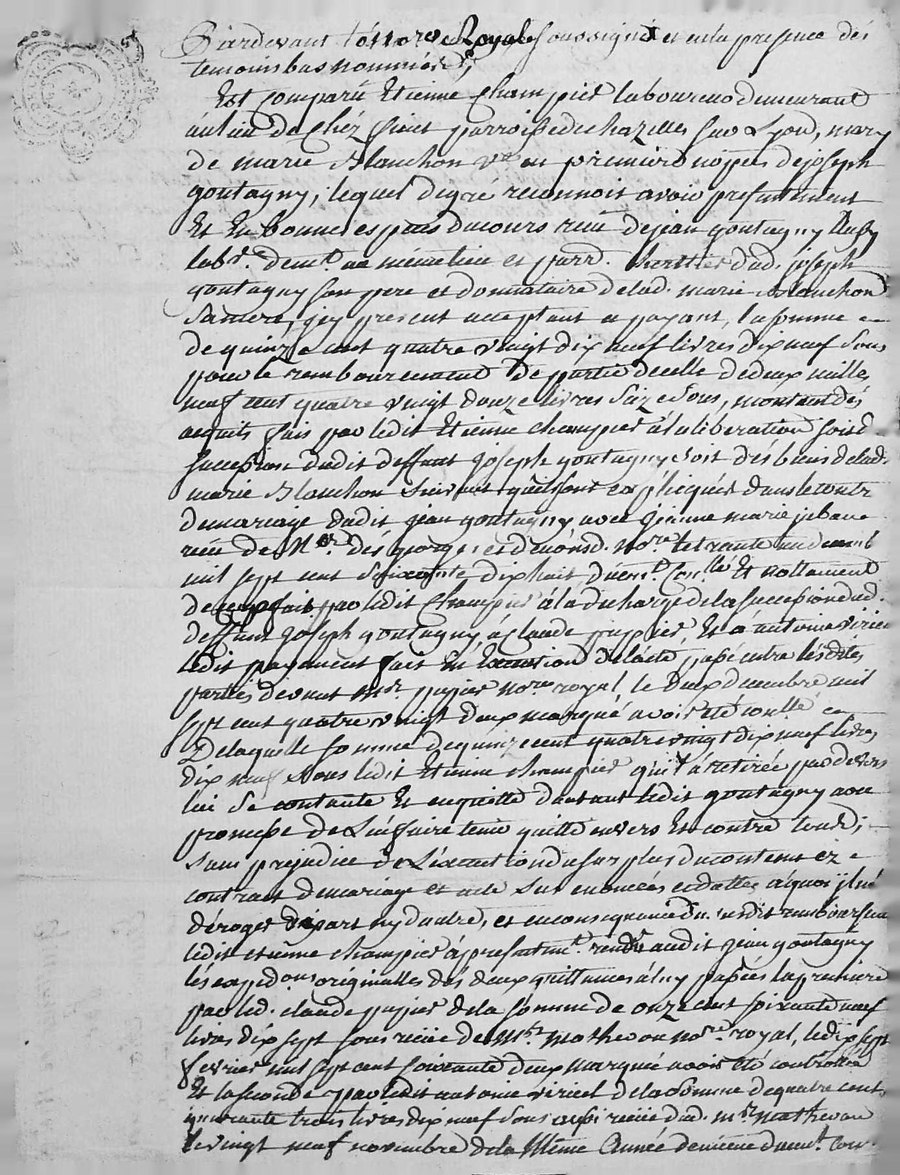 Pardevant le nore Royal soussigné et en la presence dés
temoins bas nommés,
Est comparu Etienne Champier laboureur demeurant
au lieu de chéz parroisse de chazelles sur Lyon, mary
de marie Blanchon ve en premiere nopces de joseph
goutagny; lequel de gré reconnoit avoir presentement
Et En bonnes especes du cours reçu de jean goutagny
labr. demt. au même lieu et parr. heritier dud. joseph
goutagny son pere et donnataire de lad. marie Blanchon
sa mere, icy present acceptant et payant, la somme
de quinze cent quatre vingt dix neuf livres dix neuf sous
pour le rembourcement de partie de celle de deux milles
neuf cent quatre vingt douze livres seize sous, montant dés
acquits fais par ledit Etienne champier a la libération soit de
succession dudit deffunt joseph goutagny soit des biens de lad.
marie Blanchon suivant quils sont expliqués dans le contr
de mariage dudit jean goutagny avec jeanne marie
reçu de Me. dés georges et nore le trente un decemb
mil sept cent soixante dix huit duemt. coullé Et nottament
de ceux fait par ledit champier a la decharge de la succession dud.
deffunt joseph goutagny a claude pupier, Et a antoine viricel
ledit payement fait en Execution de l'acte passé entre lésdités
partiés devant Me pupier nore royal, le deux decembre mil
sept cent quatre vingt deux marqué avoir été coullé
De laquelle somme de quinze cent quatre vingt dix neuf livres
dix neuf sous ledit Etienne champier qui l'a retirée par devers
lui se contante Et en quitte d'autant ledit goutagny avec
promesse de l'en faire tenir quitte envers Et contre tous
sans prejudice de l'execution du surplus du contenu ez
contract de mariage et acte sus enoncés et dattes, a quoi il n'est
déroger de part ny d'autre, et en consequance du susdit rembours
ledit etienne champier a presentemt. rendu audit jean goutagny
lés expedons originalles dés deux quittances a luy passées la premiere
par led. claude pupier de la somme de onze cent soixante neuf
livres dix sept sous reçue de Me mathevon nore royal, le dix sept
fevrier mil sept cent soixante deux marquée avoir été controllée
Et la seconde par ledit antoine viricel de la somme de quatre cent
quarante trois livres dix neuf sous aussi reçue dud. Me mathevon
le vingt neuf novembre de la même année